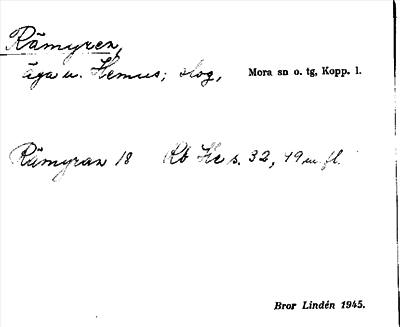 Rämyren,
äga u. Hemus; skog, Mora sn o. tg, Kopp. l.
Rämyran 18 Rb Hc s. 32, 49 m. fl.
Bror Lindén 1945.